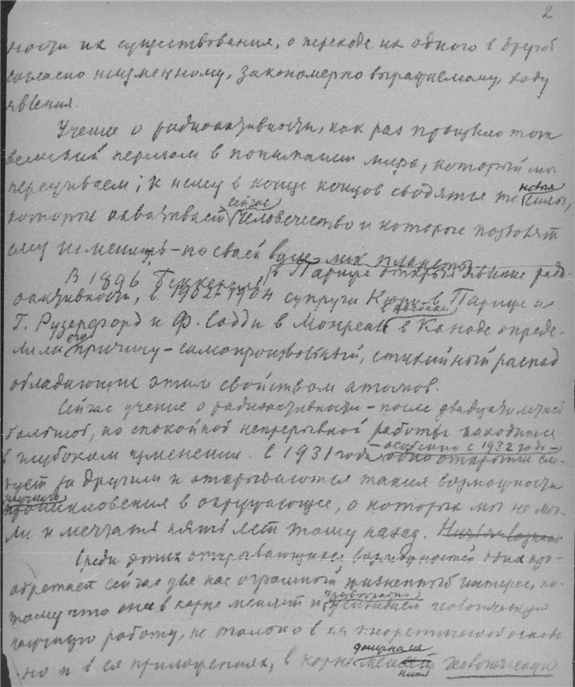 2
ности их существования, о переходе их одного в другой
согласно неизменному, закономерно выражаемому, ходу
явления.
Учение о радиоактивности, как раз произвело тот
великий перелом в понимании мира, который мы
переживаем; к нему в конце концов сводятся те новые силы,
которые охватывает сейчас человечество и которые позволят
ему изменять - по своей воле лик планеты.
В 1896 Беккерель, в Париже открыл явление ради-
оактивности, в 1902-1904 супруги Кюри в Париже и
Г. Рузерфорд и Ф. Содди в Монреале в Канаде опреде-
лили его причину - самопроизвольный, стихийный распад
обладающих этим свойством атомов.
Сейчас учение о радиоактивности - после двадцатилетней
большой, но спокойной непрерывной работы находится
в глубоком изменении. С 1931 года - особенно с 1932 года -
одно открытие сле-
дует за другим и открываются такие возможности
проникновения в окружающее, о которых мы не мог-
ли и мечтать пять лет тому назад.
Среди этих открывающихся возможностей одна при-
обретает сейчас для нас огромный жизненный интерес, по-
тому что она в корне меняет и усиливает человеческую
научную работу, не только в её теоретической основе
но и в её приложениях, в корне должна изменить человеческую